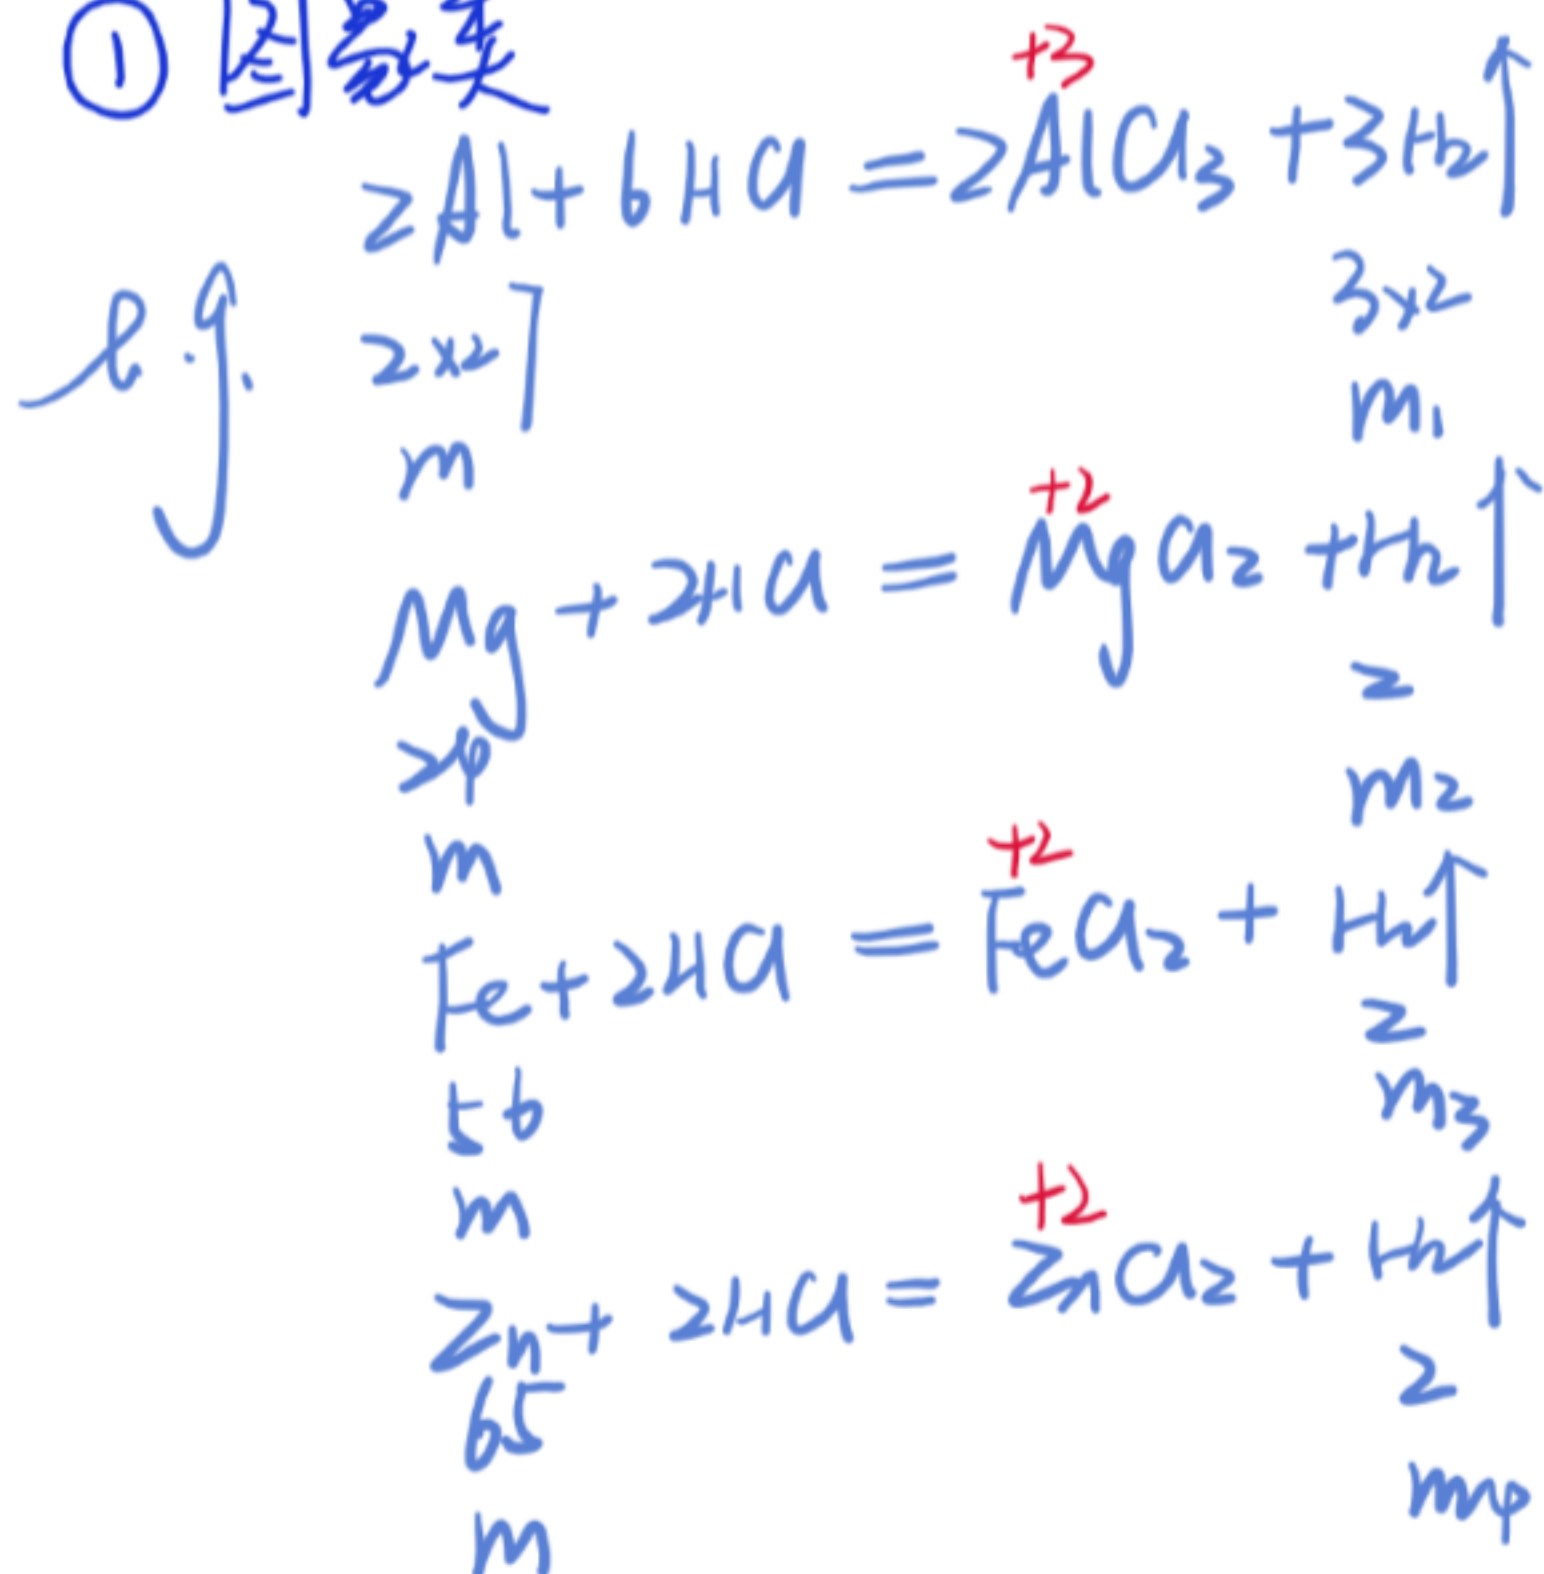 ① 图象类
+3
2Al + 6HCl = 2AlCl₃ + 3H₂↑
e.g. 2×27 3×2
m m₁
+2
Mg + 2HCl = MgCl₂ + H₂↑
24 2
m m₂
+2
Fe + 2HCl = FeCl₂ + H₂↑
56 2
m m₃
+2
Zn + 2HCl = ZnCl₂ + H₂↑
65 2
m m₄